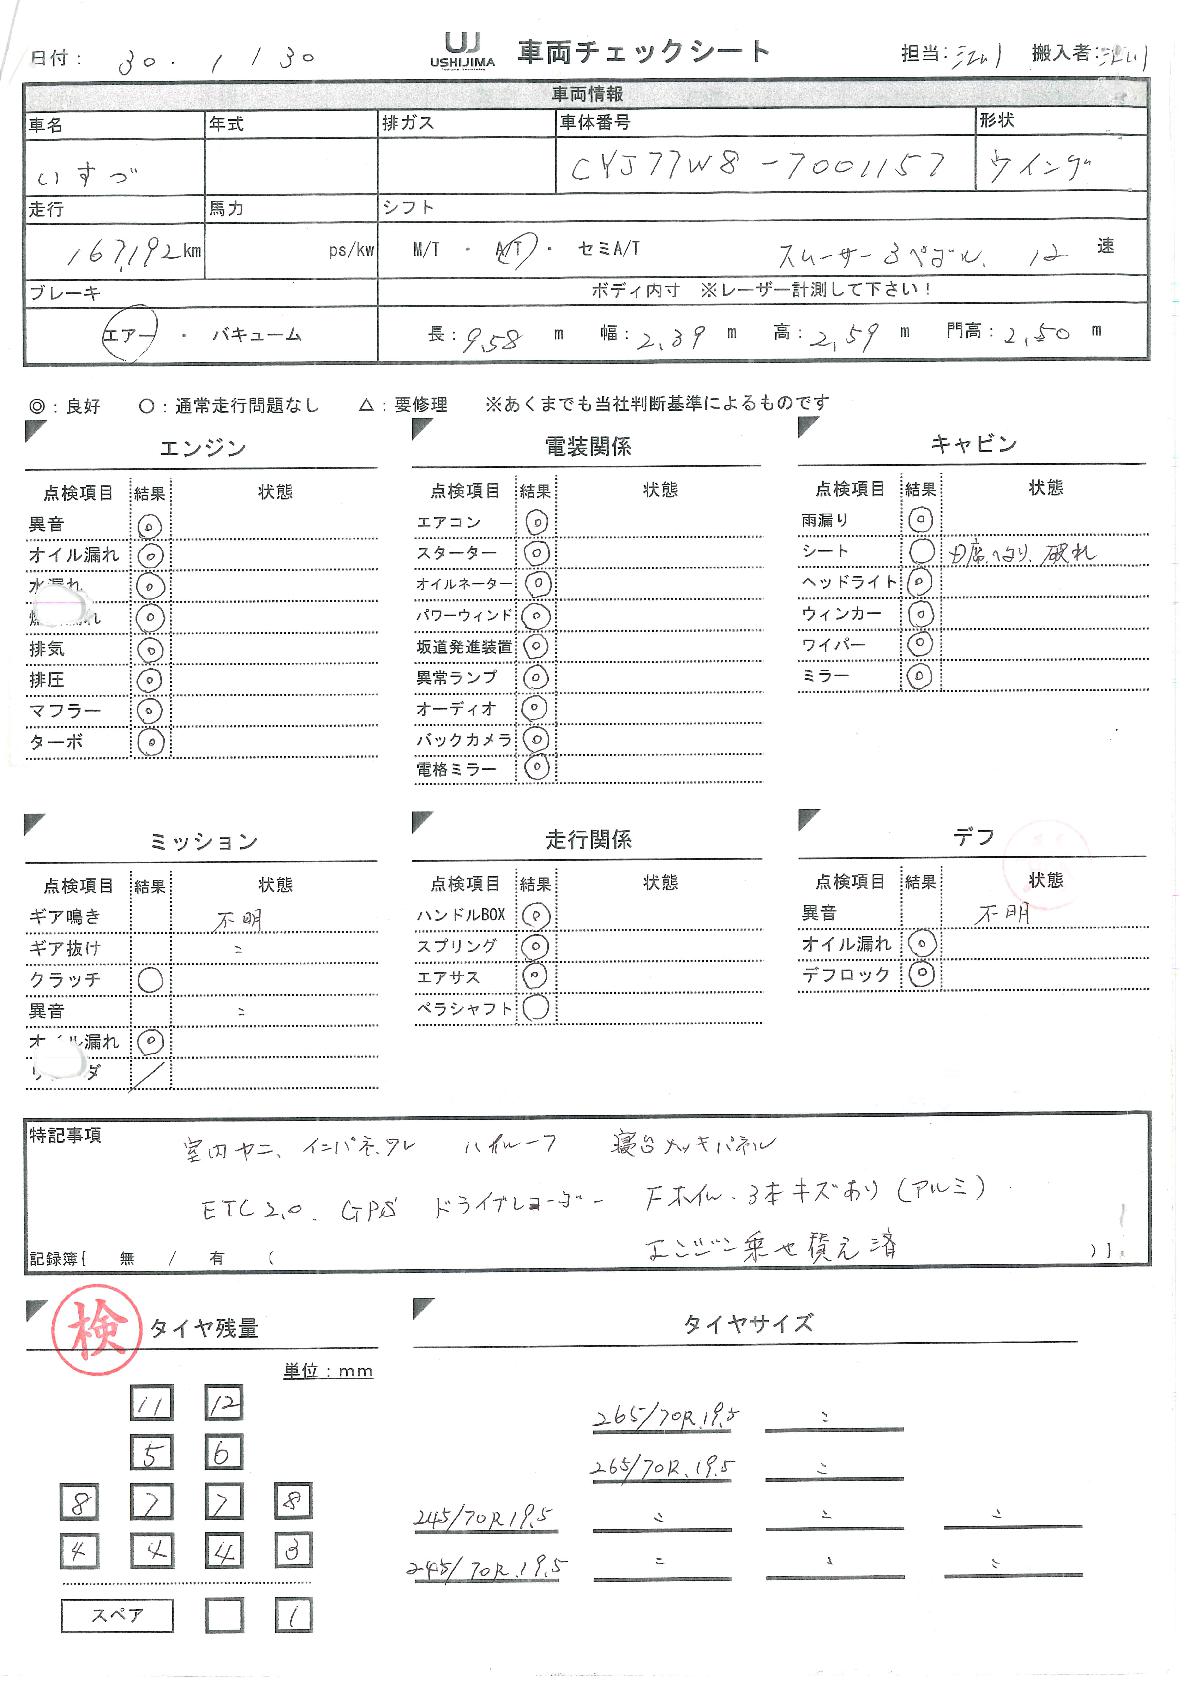 日付： 30・1/30 UJ USHIJIMA 車両チェックシート 担当： 搬入者：
車両情報
車名 年式 排ガス 車体番号 形状
いすづ CYJ77W8-7001157 ウイング
走行 馬力 シフト
167,192km ps/kw M/T ・ A/T ・ セミA/T スムーサー3ペダル、12 速
ブレーキ ボディ内寸 ※レーザー計測して下さい！
エアー ・ バキューム 長：9.58 m 幅：2.39 m 高：2.59 m 門高：2.50 m
◎：良好 〇：通常走行問題なし △：要修理 ※あくまでも当社判断基準によるものです
エンジン
点検項目 結果 状態
異音 ◎
オイル漏れ ◎
水漏れ ◎
漏れ ◎
排気 ◎
排圧 ◎
マフラー ◎
ターボ ◎
電装関係
点検項目 結果 状態
エアコン ◎
スターター ◎
オイルネーター ◎
パワーウィンド ◎
坂道発進装置 ◎
異常ランプ ◎
オーディオ ◎
バックカメラ ◎
電格ミラー ◎
キャビン
点検項目 結果 状態
雨漏り ◎
シート 〇 D席、へたり、破れ
ヘッドライト ◎
ウィンカー ◎
ワイパー ◎
ミラー ◎
ミッション
点検項目 結果 状態
ギア鳴き 不明
ギア抜け 〃
クラッチ 〇
異音 〃
オイル漏れ ◎
ダ ／
走行関係
点検項目 結果 状態
ハンドルBOX ◎
スプリング ◎
エアサス ◎
ペラシャフト 〇
デフ
点検項目 結果 状態
異音 不明
オイル漏れ ◎
デフロック ◎
特記事項 室内ヤニ、インパネ、ワレ ハイルーフ 寝台メッキパネル
ETC2.0、GPS ドライブレコーダー Fホイル、3本キズあり（アルミ）
エンジン乗せ替え済
記録簿{ 無 / 有 ( )}
検 タイヤ残量
単位：mm
11 12
5 6
8 7 7 8
4 4 4 3
スペア 1
タイヤサイズ
265/70R.19.5 〃
265/70R.19.5 〃
245/70R19.5 〃 〃 〃
245/70R.19.5 〃 〃 〃